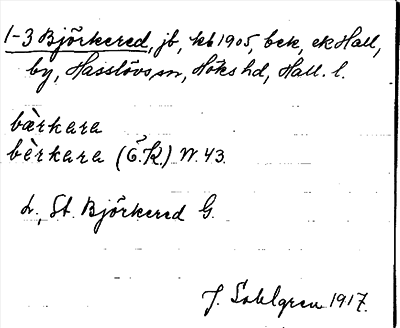 1-3 Björkered, jb, kb 1905, bek, ek Hall,
by, Hasslövs sn, Höks hd, Hall. l.
bærkara
bèrkara (Ö.K.) W. 43.
L., St. Björkered G.
J. Sahlgren 1917.